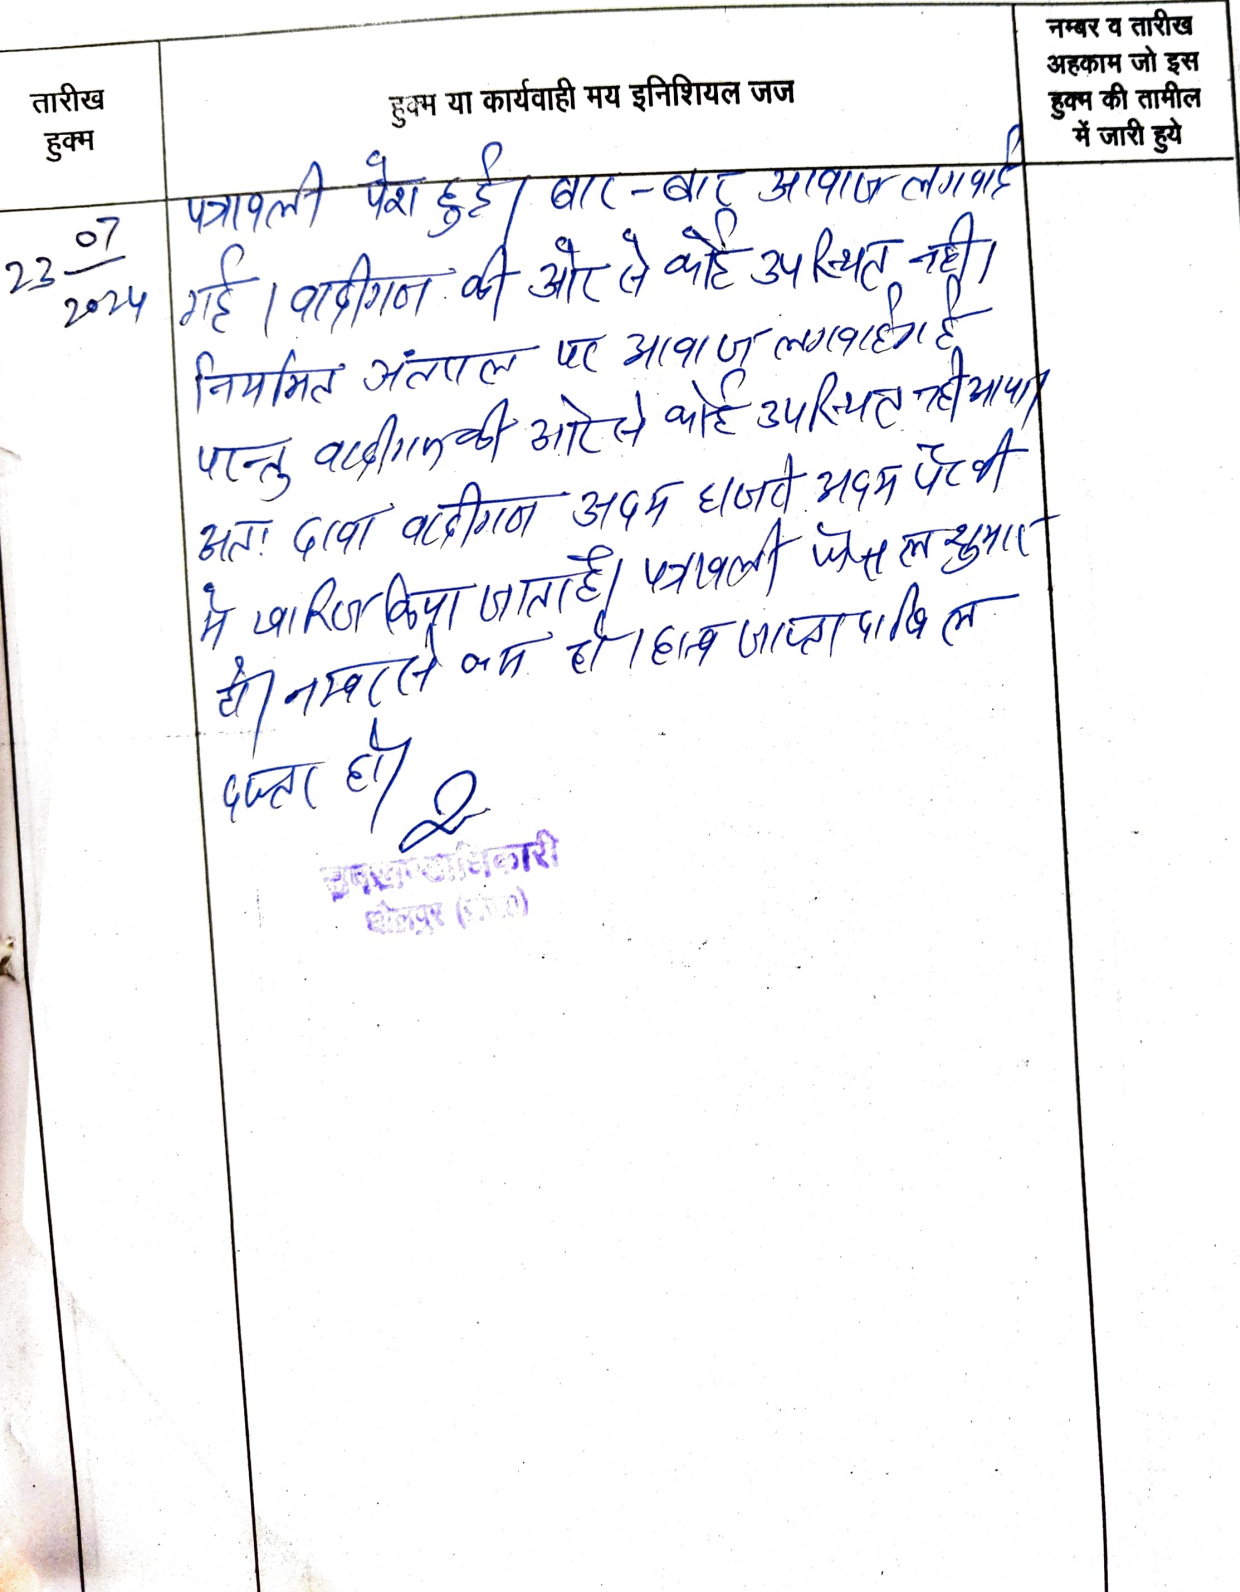 तारीख
हुक्म
हुक्म या कार्यवाही मय इनिशियल जज
नम्बर व तारीख
अहकाम जो इस
हुक्म की तामील
में जारी हुये
23 07
2024
पत्रावली पेश हुई। बार-बार आवाज लगवाई
गई। वादीगण की ओर से कोई उपस्थित नही।
नियमित अंतराल पर आवाज लगवाई गई
परन्तु वादीगण की ओर से कोई उपस्थित नही आया।
अतः दावा वादीगण अदम हाजरी अदम पैरवी
मे खारिज किया जाता है। पत्रावली फैसल शुमार
हो। नम्बर से कम हो। बाद जाप्ता दाखिल
दफ्तर हो।
उपखण्डाधिकारी
धौलपुर (राज०)